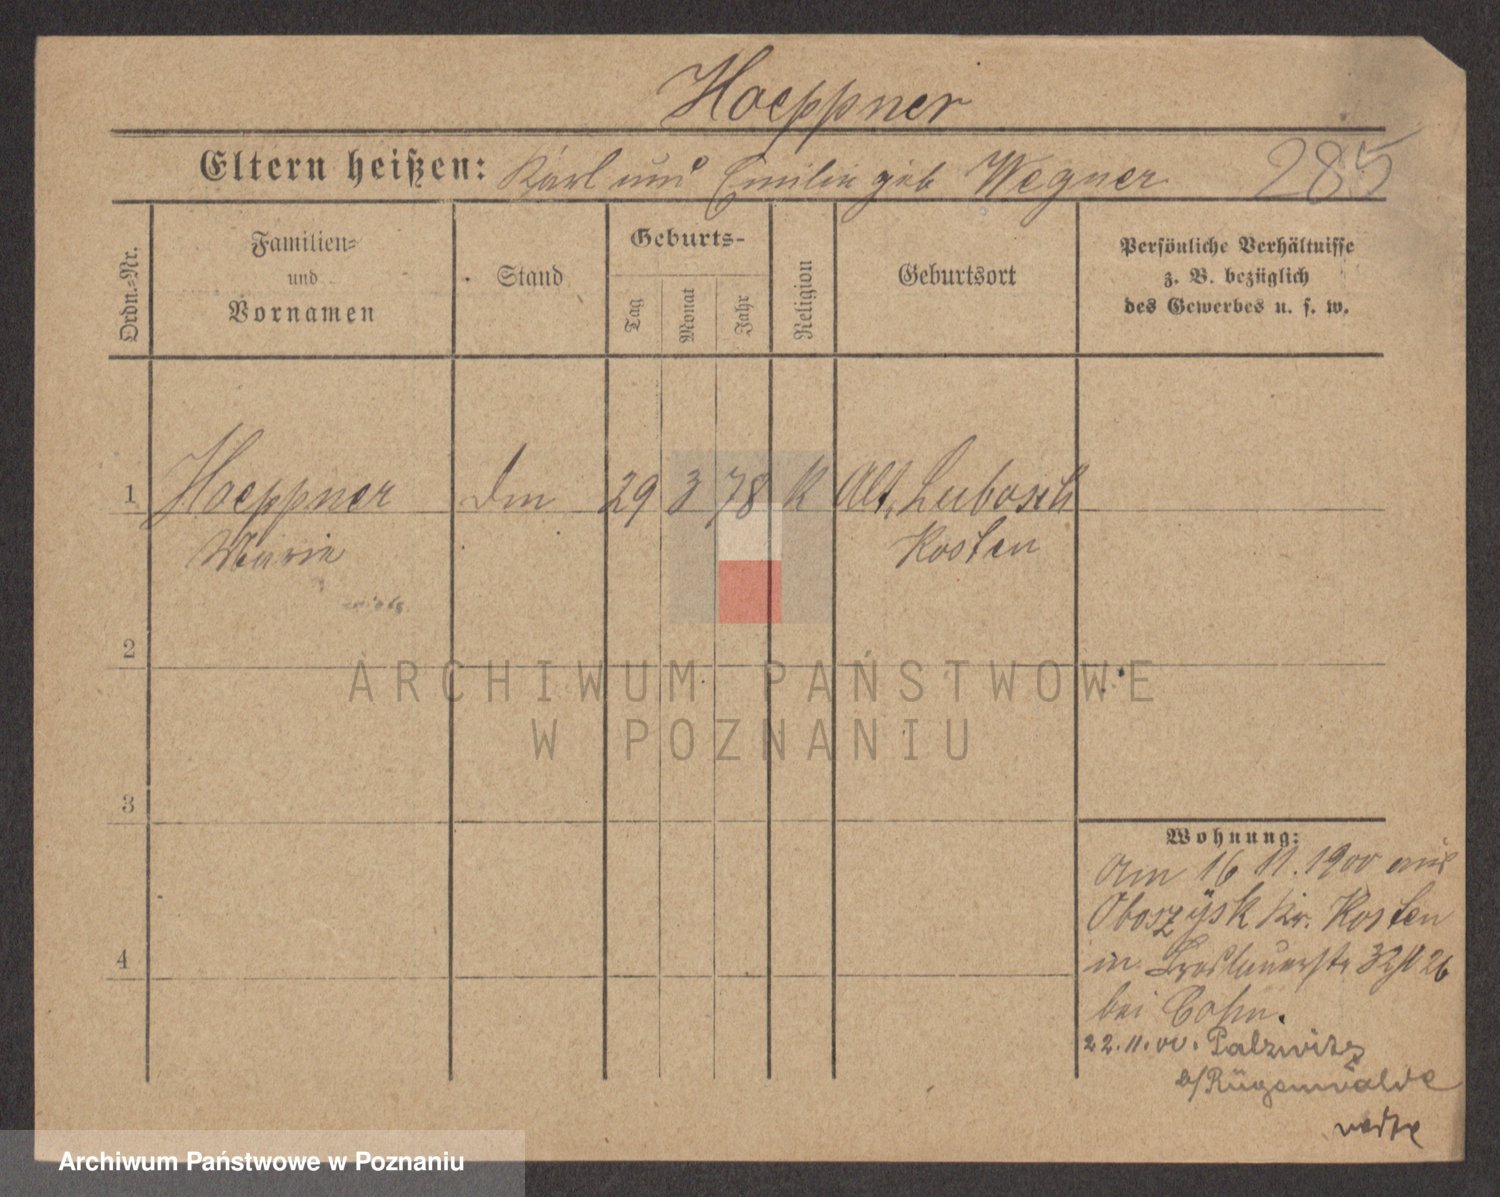 Hoeppner
Eltern heißen: Karl und Emilie geb Wegner 285
Ordn.-Nr.
Familien-
und
Vornamen
Stand
Geburts-
Tag
Monat
Jahr
Religion
Geburtsort
Persönliche Verhältnisse
z. B. bezüglich
des Gewerbes u. s. w.
1 Hoeppner 29 3 78 K Alt Lubosch
Marie Kosten
2
ARCHIWUM PAŃSTWOWE
W POZNANIU
3
Wohnung:
Am 16 11. 1900 aus
Oboszysk Kr. Kosten
in
4
bei Cohn.
22.11.00. Palzwitz
b/Rügenwalde
Archiwum Państwowe w Poznaniu